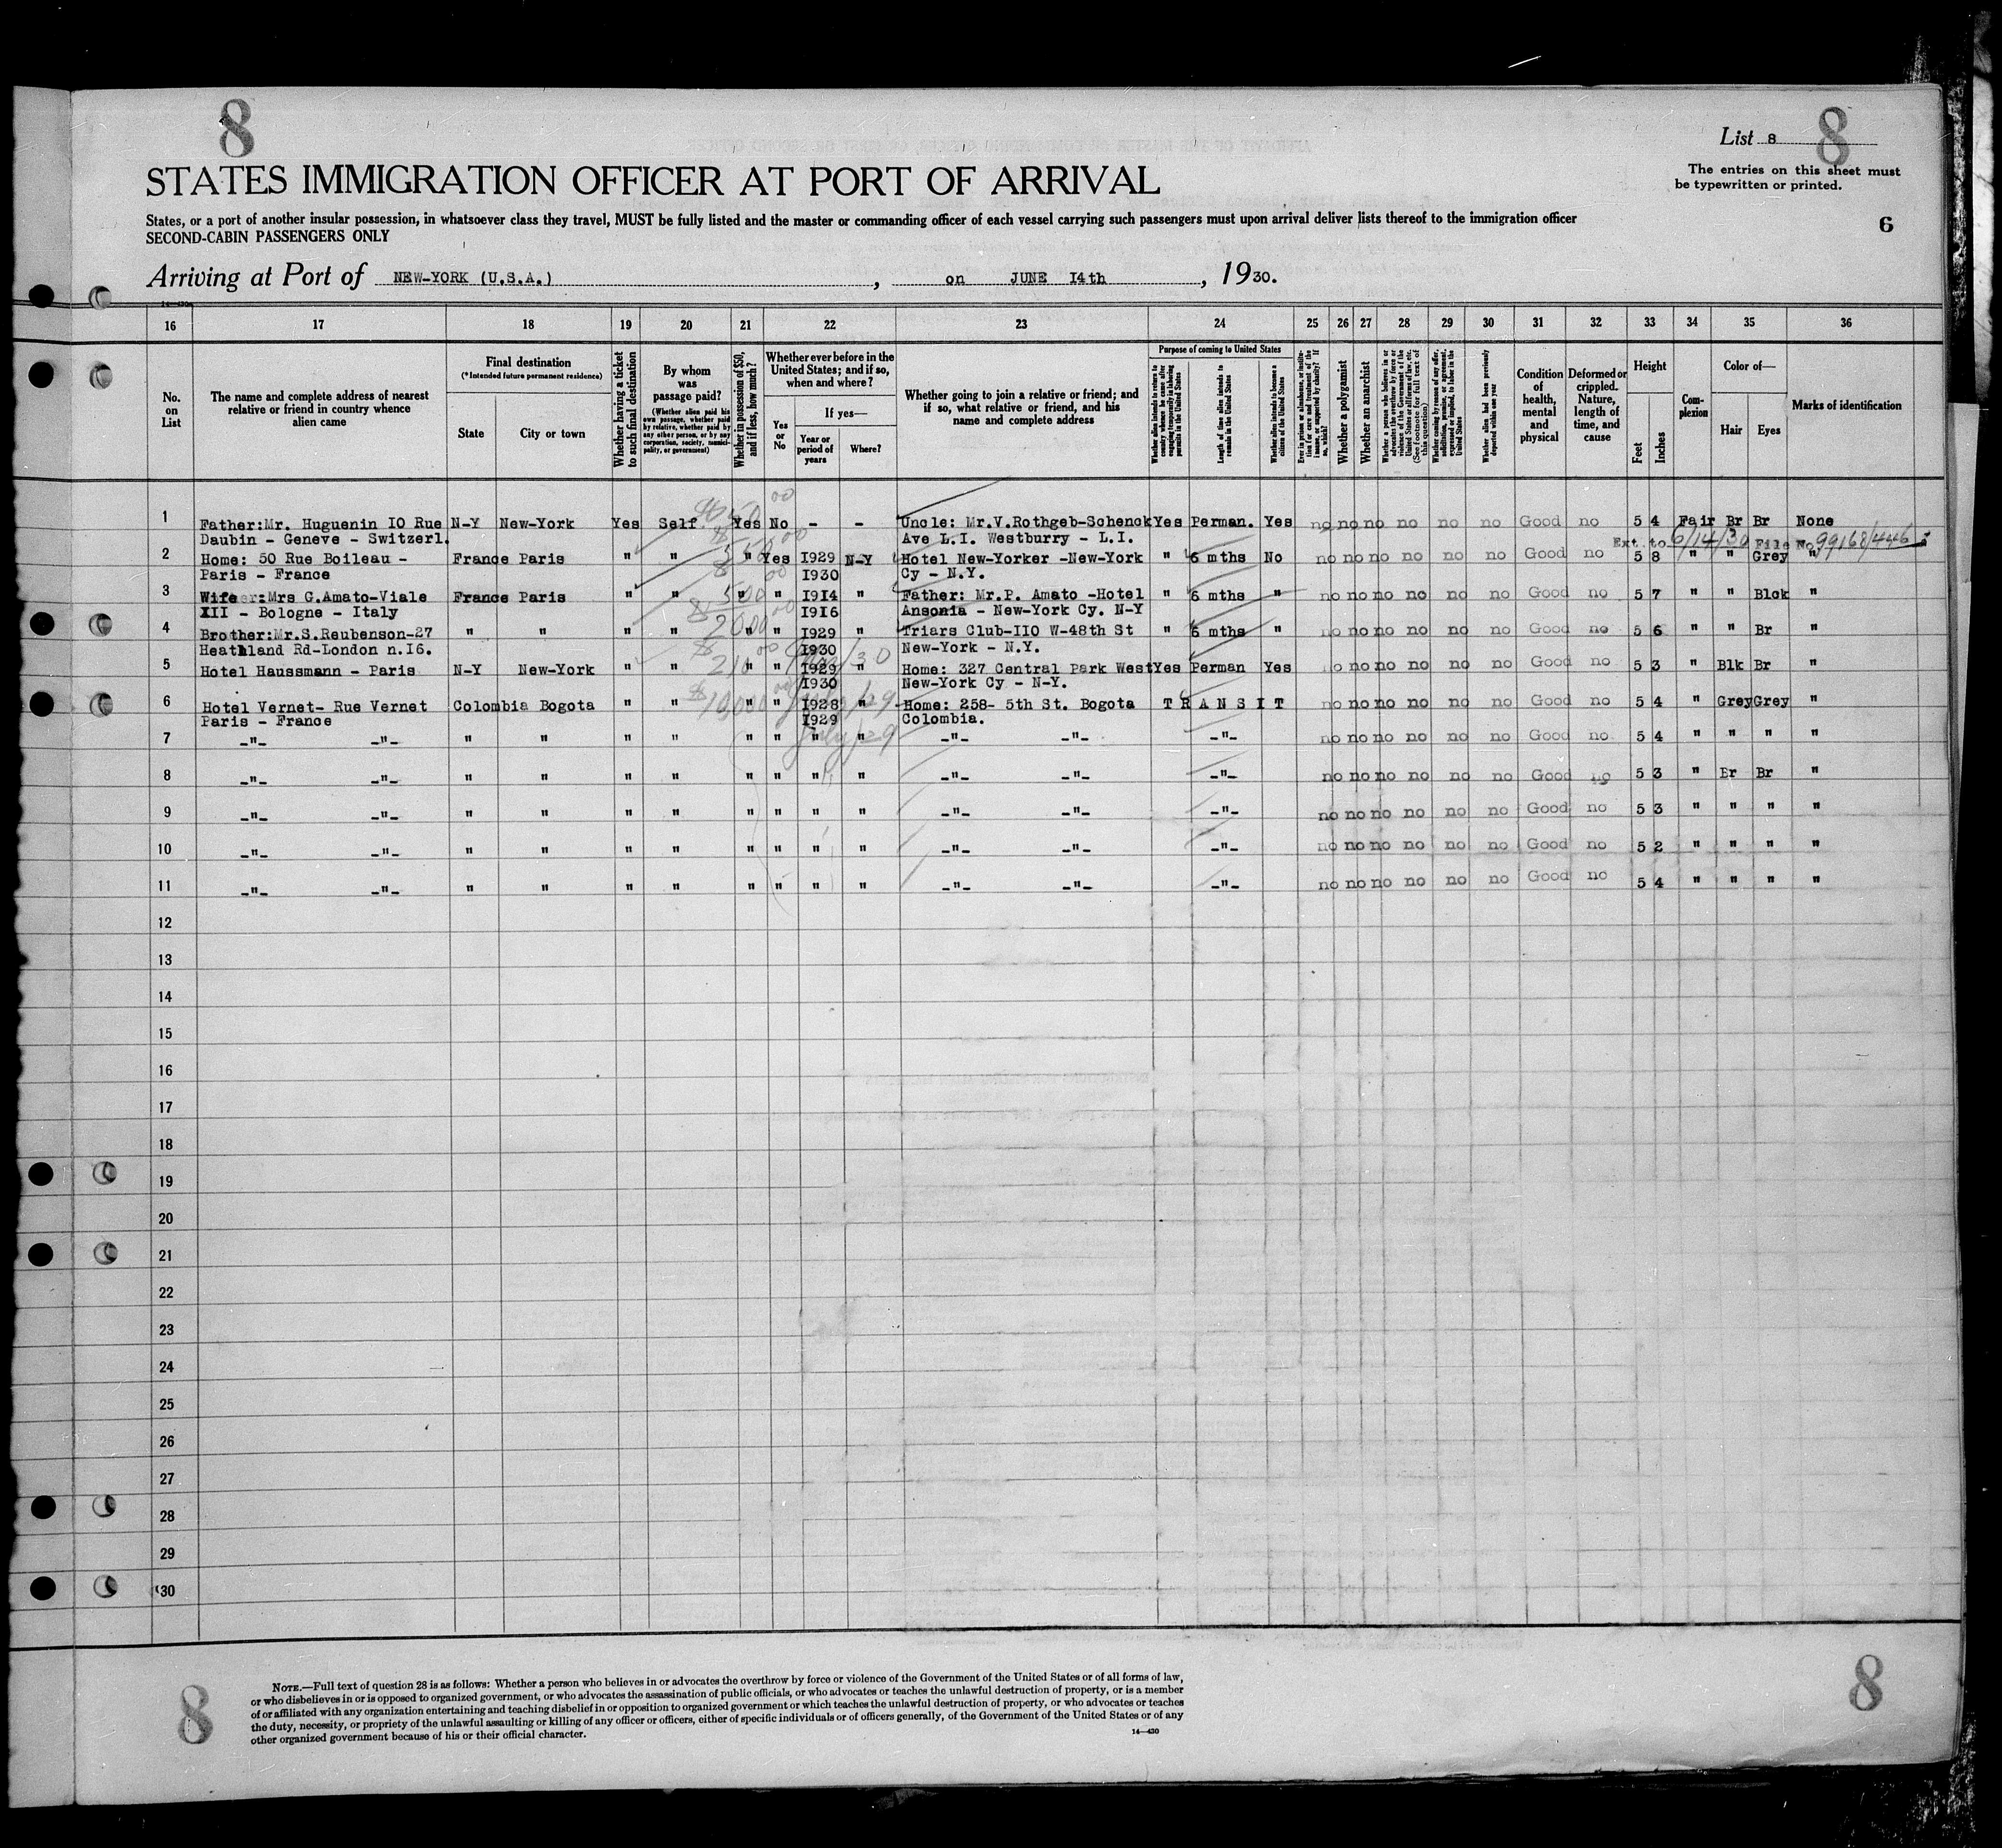 8
8
List 8
The entries on this sheet must
be typewritten or printed.
STATES IMMIGRATION OFFICER AT PORT OF ARRIVAL
States, or a port of another insular possession, in whatsoever class they travel, MUST be fully listed and the master or commanding officer of each vessel carrying such passengers must upon arrival deliver lists thereof to the immigration officer
SECOND-CABIN PASSENGERS ONLY
6
Arriving at Port of NEW-YORK (U.S.A.), on JUNE I4th, 1930.
16 17 18 19 20 21 22 23 24 25 26 27 28 29 30 31 32 33 34 35 36
No. on List
The name and complete address of nearest relative or friend in country whence alien came
Final destination
(*Intended future permanent residence)
State
City or town
Whether having a ticket to such final destination
By whom was passage paid?
(Whether alien paid his own passage, whether paid by relative, whether paid by any other person, or by any corporation, society, municipality, or government)
Whether in possession of $50, and if less, how much?
Whether ever before in the United States; and if so, when and where?
Yes or No
If yes—
Year or period of years
Where?
Whether going to join a relative or friend; and if so, what relative or friend, and his name and complete address
Purpose of coming to United States
Whether alien intends to return to country whence he came after engaging temporarily in laboring pursuits in the United States
Length of time alien intends to remain in the United States
Whether alien intends to become a citizen of the United States
Ever in prison or almshouse, or institution for care and treatment of the insane, or supported by charity? If so, which?
Whether a polygamist
Whether an anarchist
Whether a person who believes in or advocates the overthrow by force or violence of the Government of the United States or all forms of law, etc. (See footnote for full text of this question)
Whether coming by reason of any offer, solicitation, promise, or agreement, expressed or implied, to labor in the United States
Whether alien had been previously deported within one year
Condition of health, mental and physical
Deformed or crippled. Nature, length of time, and cause
Height
Feet
Inches
Complexion
Color of—
Hair
Eyes
Marks of identification
1 Father:Mr. Huguenin IO Rue N-Y New-York Yes Self Yes No - - Uncle: Mr.V.Rothgeb-Schenck Yes Perman. Yes no no no no no no Good no 5 4 Fair Br Br None
Daubin - Geneve - Switzerl. Ave L.I. Westburry - L.I.
Ext. to 6/14/30 File No. 99168/446
2 Home: 50 Rue Boileau - France Paris " " " Yes I929 N-Y Hotel New-Yorker -New-York " 6 mths No no no no no no no Good no 5 8 " " Grey "
Paris - France I930 Cy - N.Y.
3 Wife:Mrs G.Amato-Viale France Paris " " 500 " " I914 " Father: Mr.P. Amato -Hotel " 6 mths " no no no no no no Good no 5 7 " " Blck "
XII - Bologne - Italy I916 Ansonia - New-York Cy. N-Y
4 Brother:Mr.S.Reubenson-27 " " " " 2000 " " I929 " Triars Club-IIO W-48th St " 6 mths " no no no no no no Good no 5 6 " " Br "
Heathland Rd-London n.I6. I930 New-York - N.Y.
5 Hotel Haussmann - Paris N-Y New-York " " 210 " " I929 " Home: 327 Central Park West Yes Perman Yes no no no no no no Good no 5 3 " Blk Br "
I930 New-York Cy - N-Y.
6 Hotel Vernet- Rue Vernet Colombia Bogota " " $10,000 " " I928 " Home: 258- 5th St. Bogota TRANSIT no no no no no no Good no 5 4 " Grey Grey "
Paris - France I929 Colombia.
July/29
7 -"- -"- " " " " " " " " -"- -"- -"- no no no no no no Good no 5 4 " " " "
8 -"- -"- " " " " " " " " -"- -"- -"- no no no no no no Good no 5 3 " Br Br "
9 -"- -"- " " " " " " " " -"- -"- -"- no no no no no no Good no 5 3 " " " "
10 -"- -"- " " " " " " " " -"- -"- -"- no no no no no no Good no 5 2 " " " "
11 -"- -"- " " " " " " " " -"- -"- -"- no no no no no no Good no 5 4 " " " "
12
13
14
15
16
17
18
19
20
21
22
23
24
25
26
27
28
29
30
NOTE.—Full text of question 28 is as follows: Whether a person who believes in or advocates the overthrow by force or violence of the Government of the United States or of all forms of law,
or who disbelieves in or is opposed to organized government, or who advocates the assassination of public officials, or who advocates or teaches the unlawful destruction of property, or is a member
of or affiliated with any organization entertaining and teaching disbelief in or opposition to organized government or which teaches the unlawful destruction of property, or who advocates or teaches
the duty, necessity, or propriety of the unlawful assaulting or killing of any officer or officers, either of specific individuals or of officers generally, of the Government of the United States or of any
other organized government because of his or their official character.
14—430
8
8